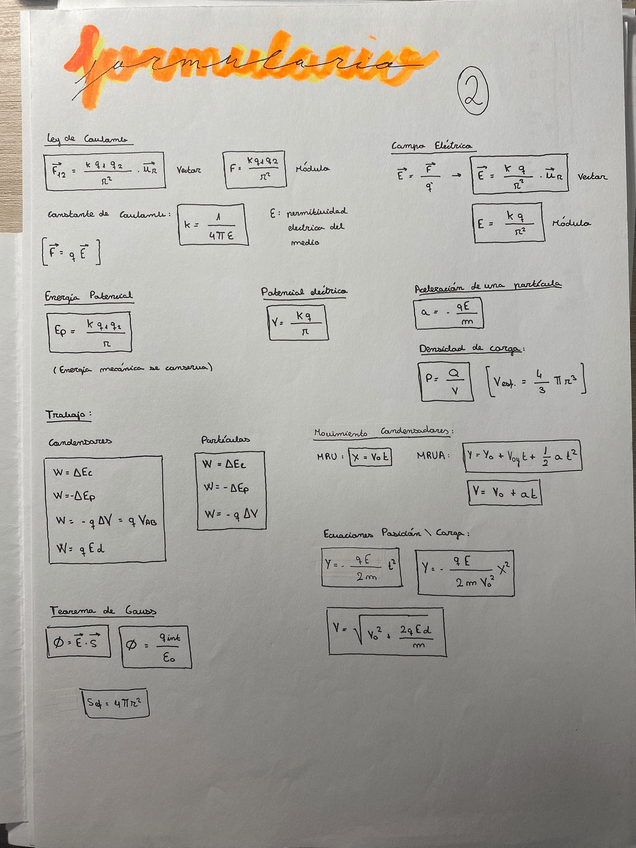 formulario
2
Ley de Coulomb
F⃗12 = k q1 q2 / r² · u⃗r Vector F = k q1 q2 / r² Módulo
Constante de Coulomb: k = 1 / 4πε ε: permitividad
electrica del
medio
[F⃗ = q E⃗]
Campo Eléctrico
E⃗ = F⃗ / q → E⃗ = k q / r² · u⃗r Vector
E = k q / r² Módulo
Energía Potencial
Ep = k q1 q2 / r
(Energía mecánica se conserva)
Potencial eléctrico
V = k q / r
Aceleración de una partícula
a = - qE / m
Densidad de carga:
ρ = Q / V [Vesf. = 4/3 π r³]
Trabajo:
Condensores
W = ΔEc
W = -ΔEp
W = - q ΔV = q VAB
W = q E d
Partículas
W = ΔEc
W = - ΔEp
W = - q ΔV
Movimiento Condensadores:
MRU: X = Vo t MRUA: Y = Yo + Voy t + 1/2 a t²
V = Vo + at
Ecuaciones Posición \ Carga:
Y = - qE / 2m t² Y = - qE / 2m Vo² X²
V = √(Vo² + 2qEd / m)
Teorema de Gauss
Ø = E⃗ · S⃗ Ø = qint / εo
Sef = 4πr²